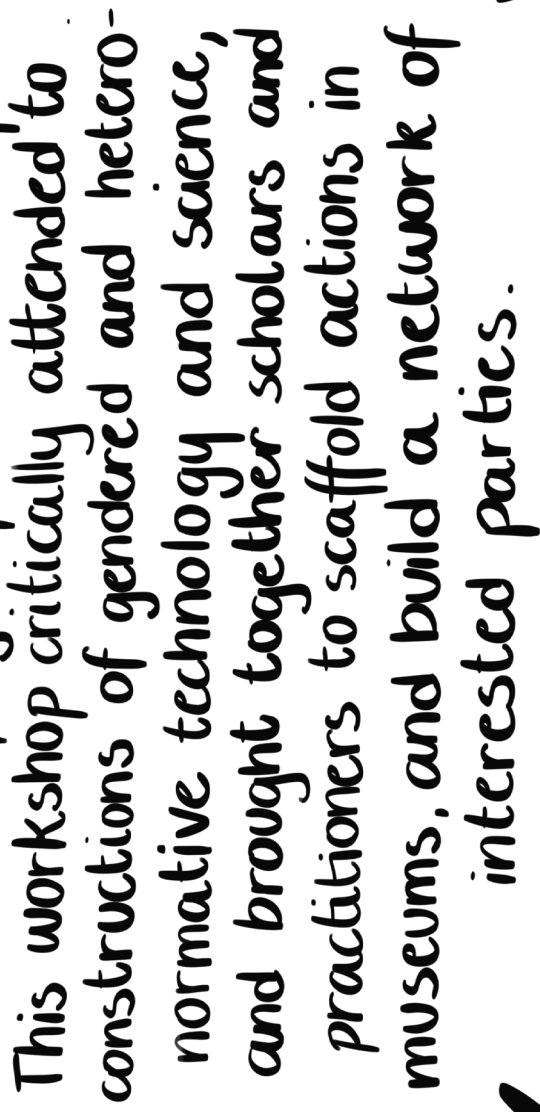 This workshop critically attended to
constructions of gendered and hetero-
normative technology and science,
and brought together scholars and
practitioners to scaffold actions in
museums, and build a network of
interested parties.